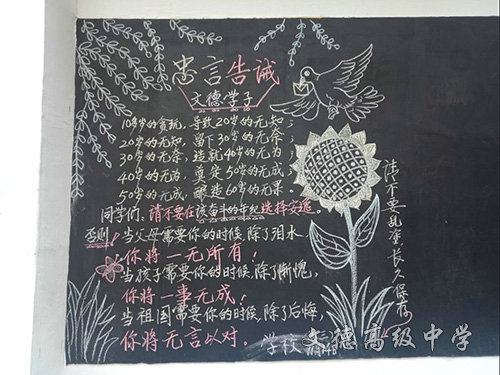 忠言告诫
文德学子
10多岁的贪玩,导致20岁的无知;
20岁的无知,留下30岁的无奈;
30岁的无奈,造就40岁的无为;
40岁的无为,奠定50岁的无成;
50岁的无成,酿造60岁的无果。
同学们,请不要在该奋斗的年纪选择安逸。
否则!当父母需要你的时候,除了泪水,
你将一无所有!
当孩子需要你的时候,除了惭愧,
你将一事无成!
当祖国需要你的时候,除了后悔,
你将无言以对。
学校
请不要乱涂,长久保存
文德高级中学